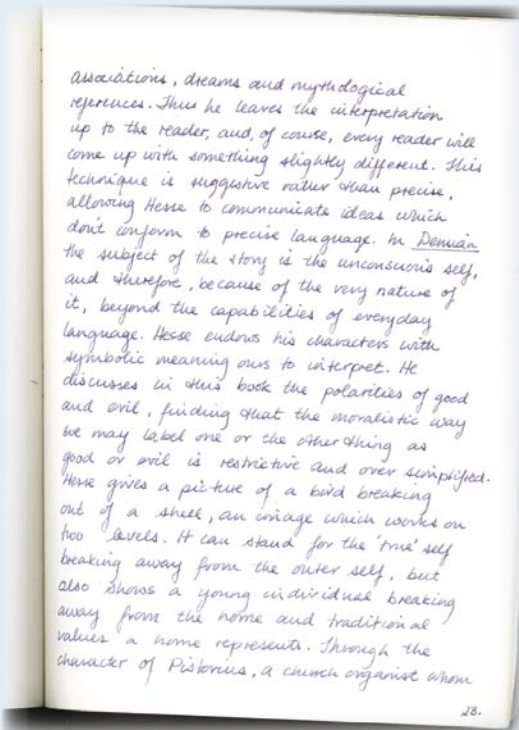 associations, dreams and mythological
references. Thus he leaves the interpretation
up to the reader, and, of course, every reader will
come up with something slightly different. This
technique is suggestive rather than precise,
allowing Hesse to communicate ideas which
don't conform to precise language. In Demian
the subject of the story is the unconscious self,
and therefore, because of the very nature of
it, beyond the capabilities of everyday
language. Hesse endows his characters with
symbolic meaning ours to interpret. He
discusses in this book the polarities of good
and evil, finding that the moralistic way
we may label one or the other thing as
good or evil is restrictive and over simplified.
Hesse gives a picture of a bird breaking
out of a shell, an image which works on
two levels. It can stand for the 'true' self
breaking away from the outer self, but
also shows a young individual breaking
away from the home and traditional
values a home represents. Through the
character of Pistorius, a church organist whom
28.